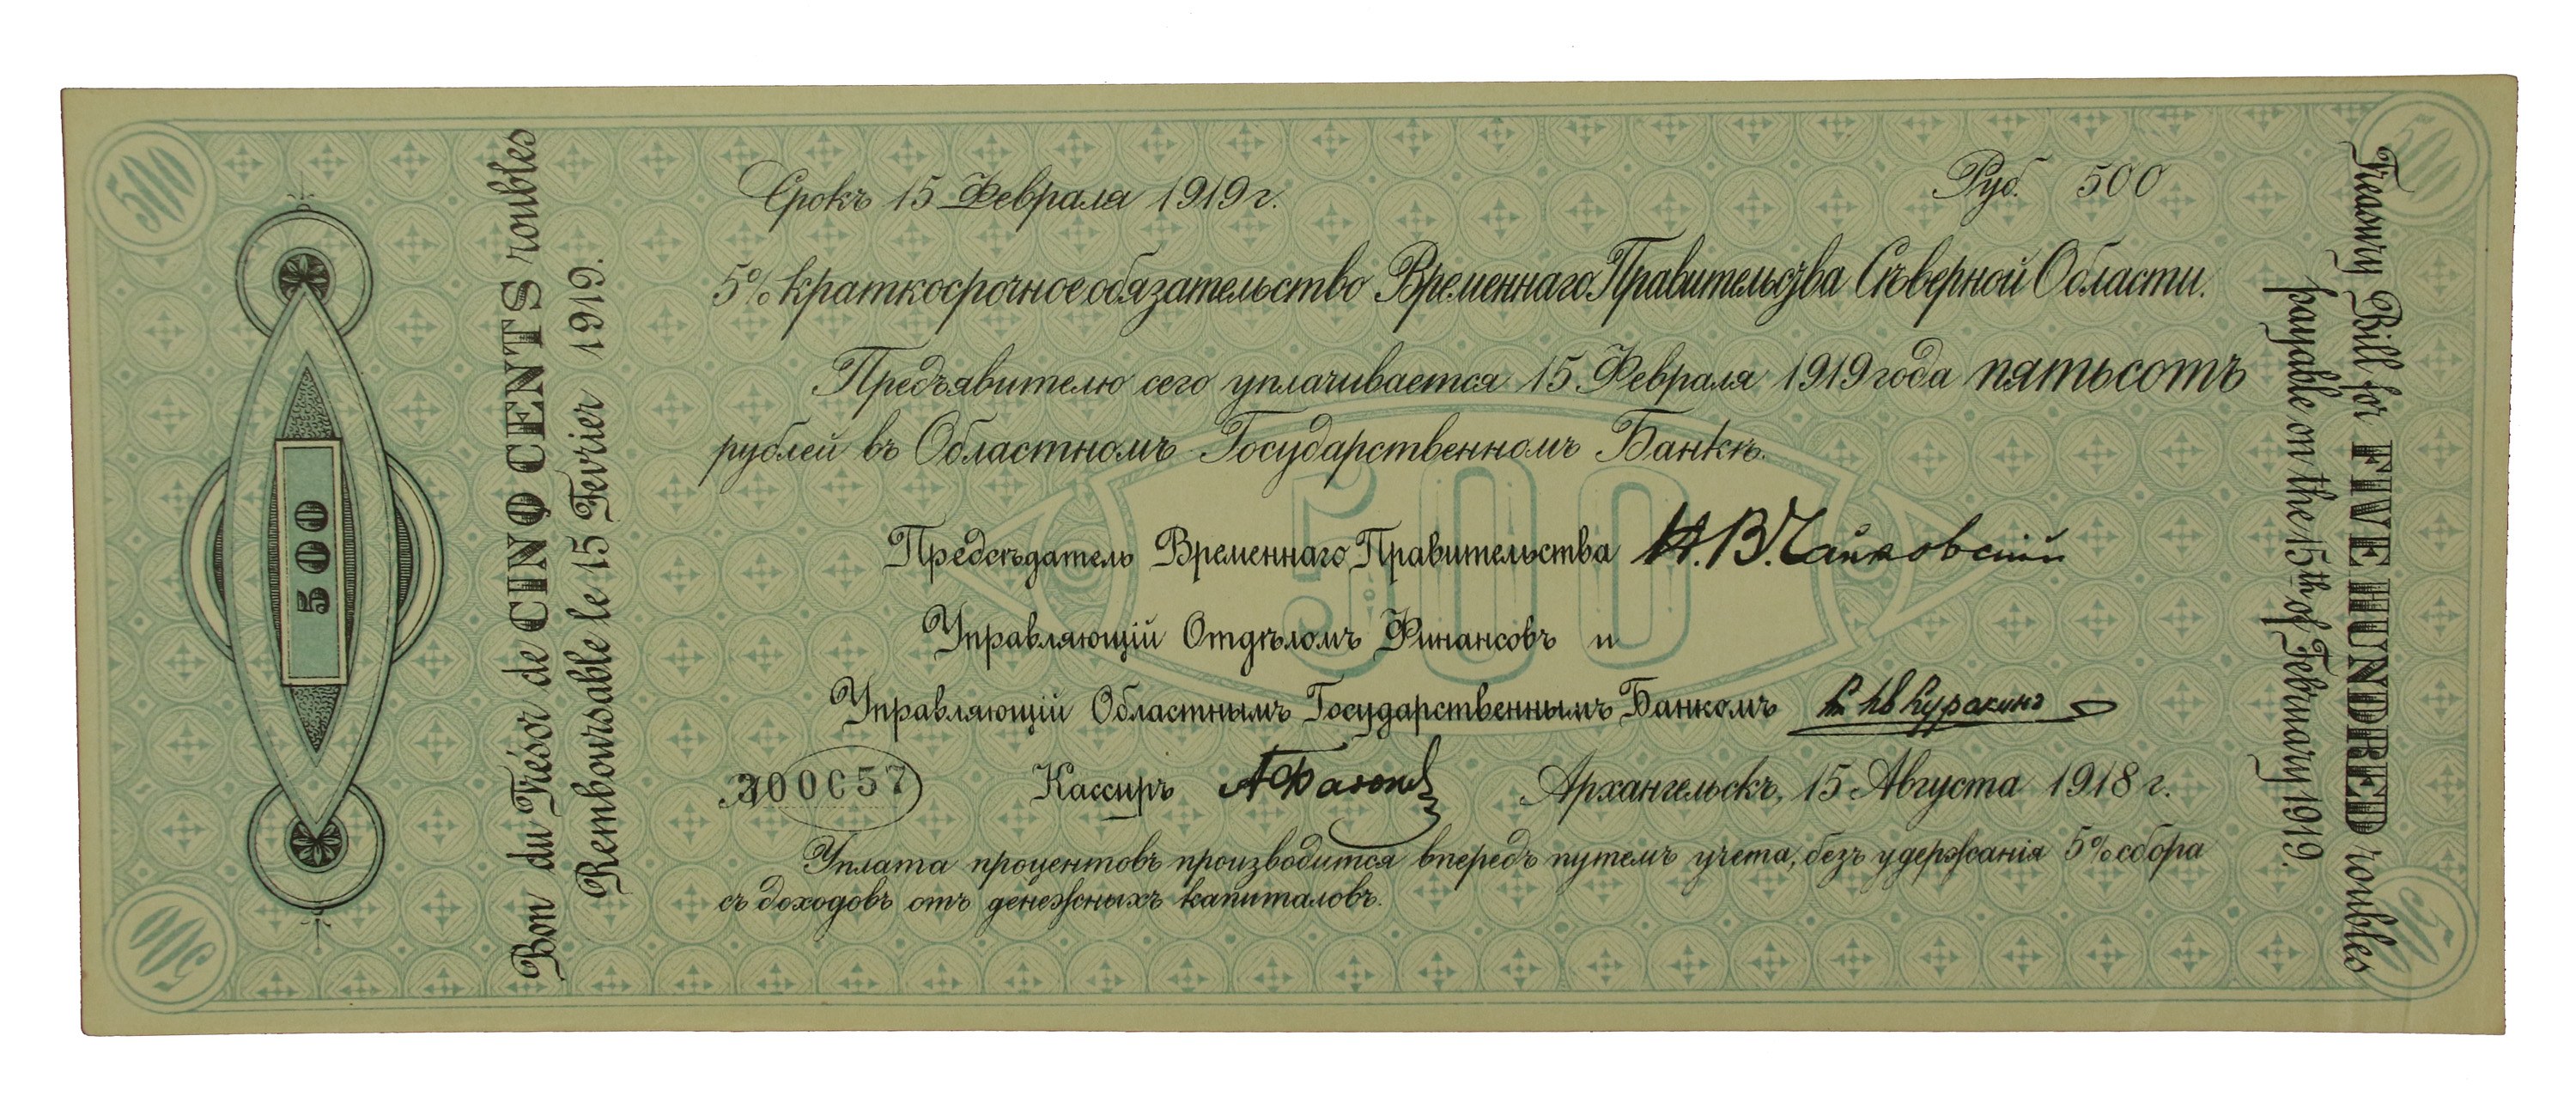 500
500
Срокъ 15 Февраля 1919 г.
Руб. 500
5% краткосрочное обязательство Временнаго Правительства Сѣверной Области.
Предъявителю сего уплачивается 15 Февраля 1919 года пятьсотъ
рублей въ Областномъ Государственномъ Банкѣ.
500
Предсѣдатель Временнаго Правительства Н. В. Чайковскій
Управляющій Отдѣломъ Финансовъ и
Управляющій Областнымъ Государственнымъ Банкомъ Куракинъ
Кассиръ
Архангельскъ, 15 Августа 1918 г.
Уплата процентовъ производится впередъ путемъ учета, безъ удержанія 5% сбора
съ доходовъ отъ денежныхъ капиталовъ.
500
Bon du Trésor de CINQ CENTS roubles
Remboursable le 15 Fevrier 1919.
Treasury Bill for FIVE HUNDRED roubles
payable on the 15th of February 1919.
500
500